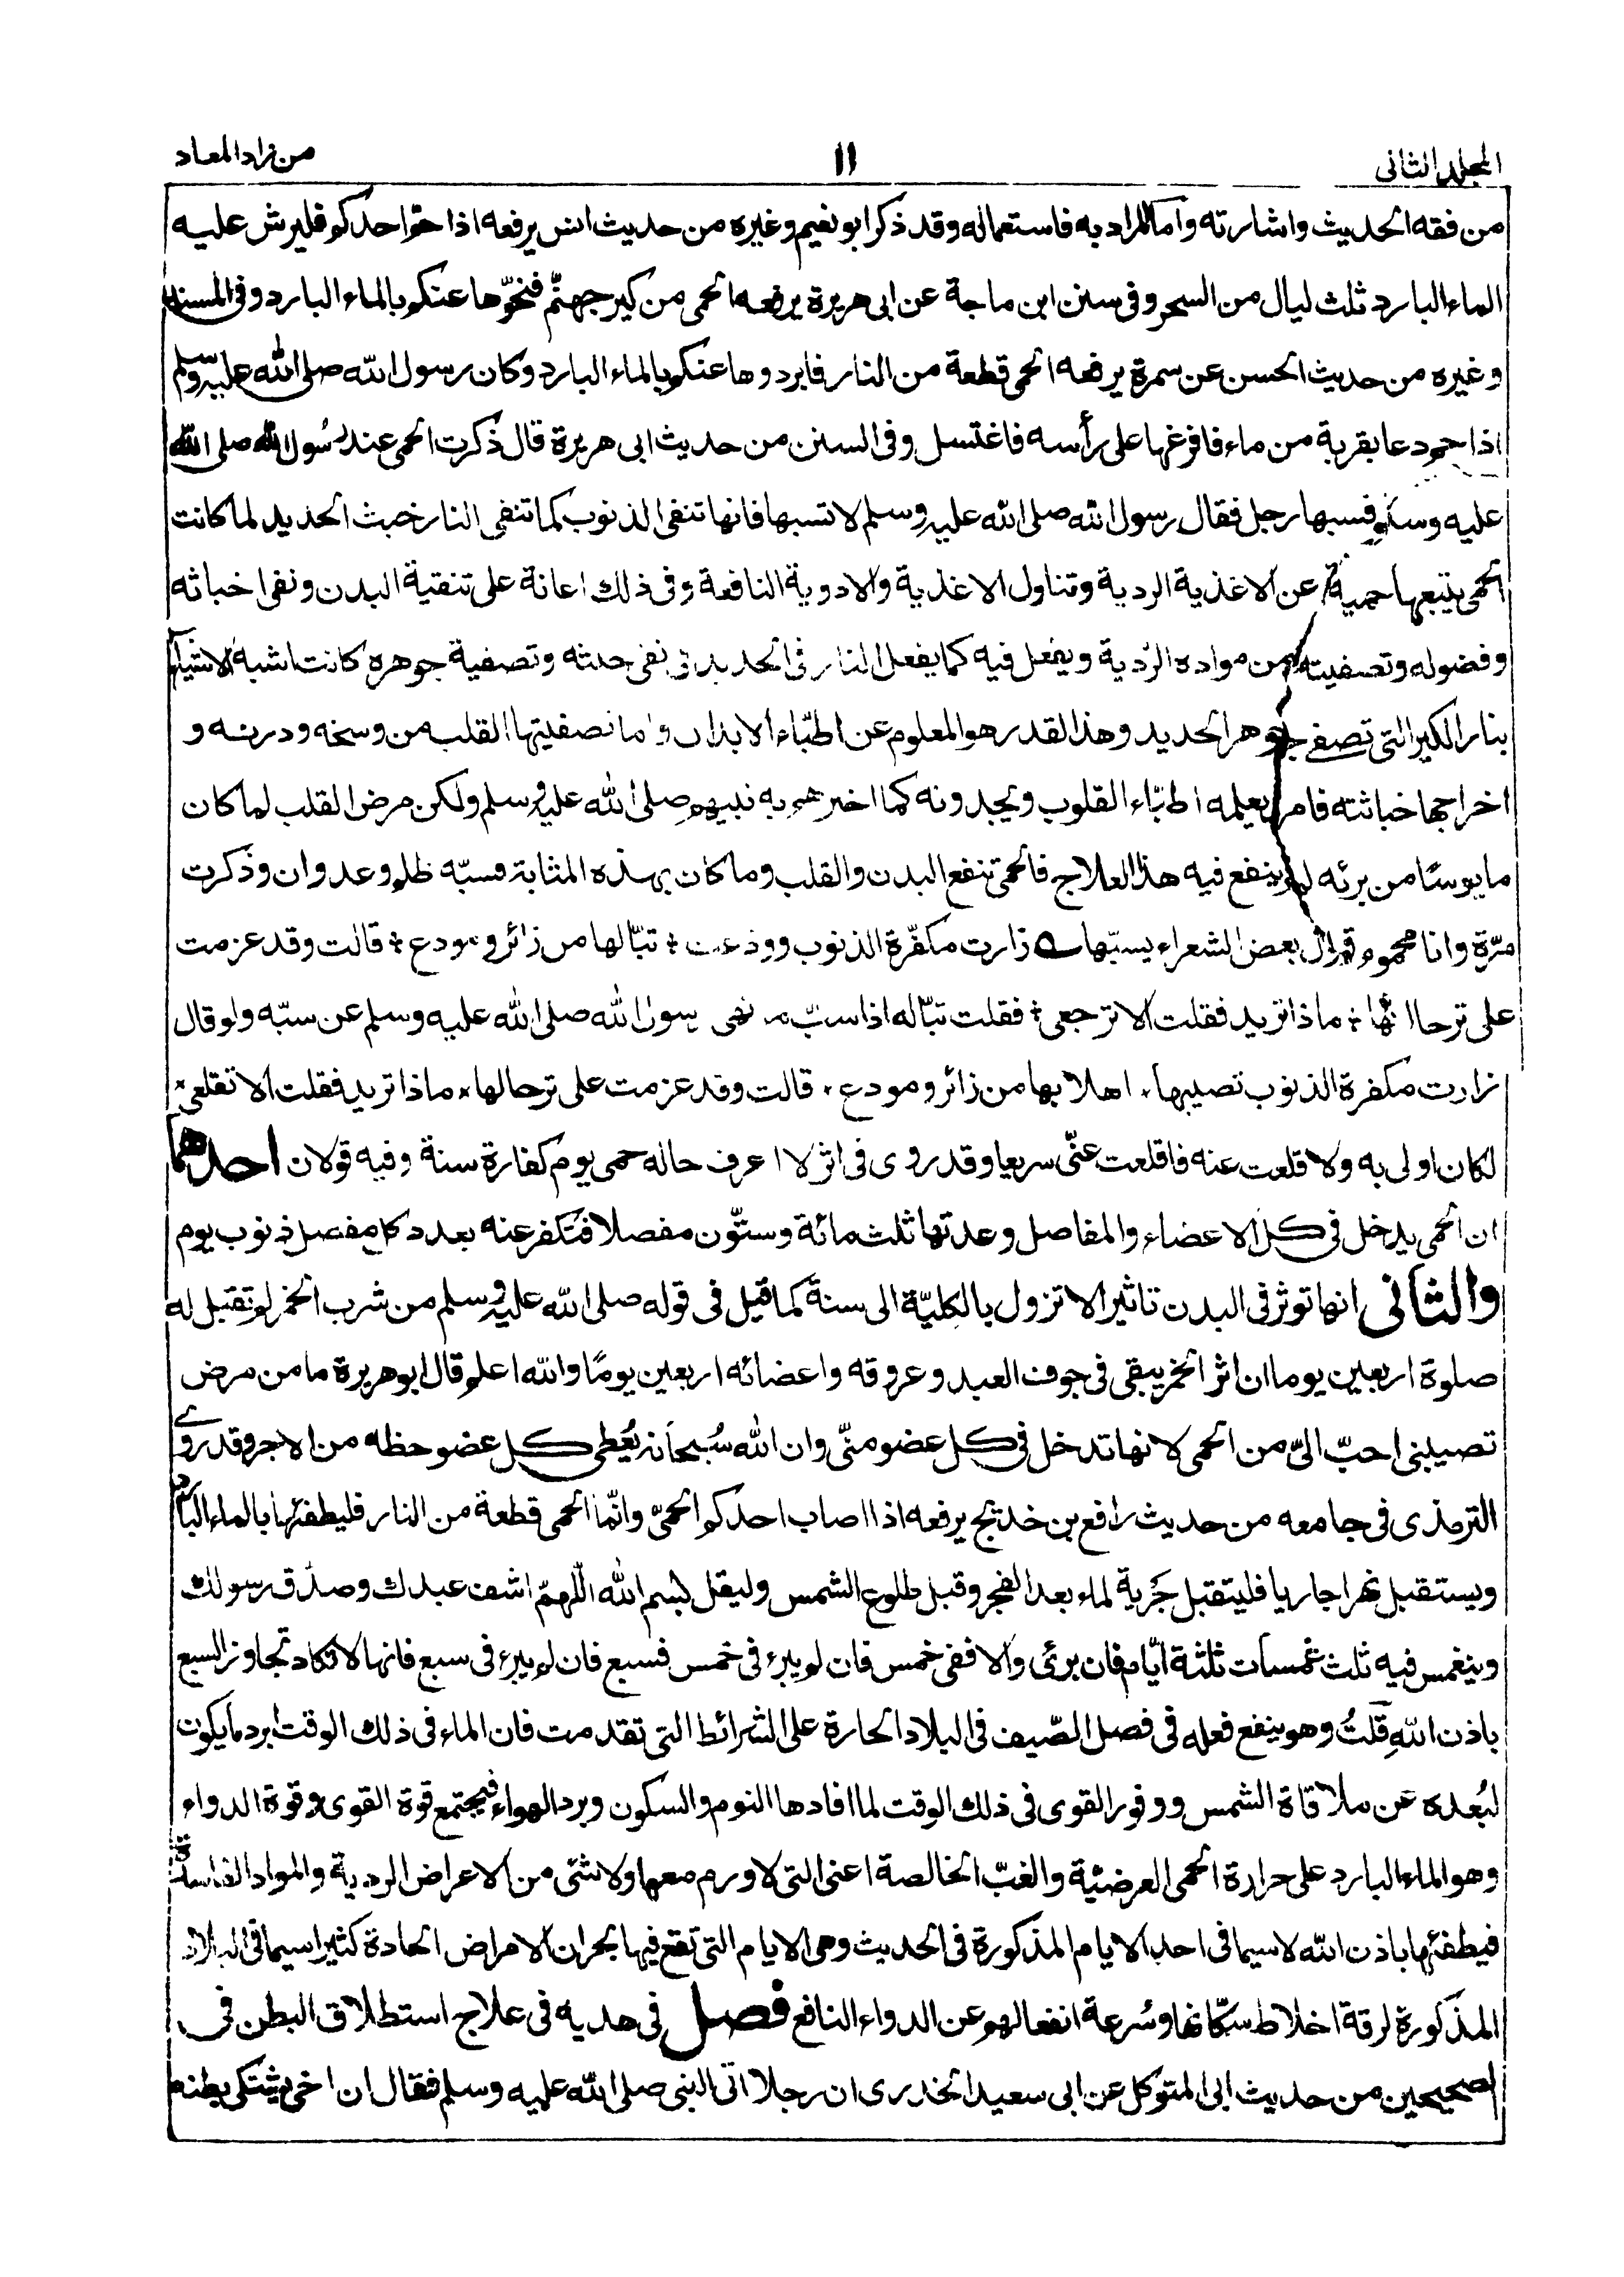 المجلد الثانى
١١
من زاد المعاد
من فقه الحديث واشارته واما المراد به فاستعماله وقد ذكر ابو نعيم وغيره من حديث انس يرفعه اذا حمّ احدكم فليرش عليه
الماء البارد ثلث ليال من السحر وفى سنن ابن ماجة عن ابى هريرة يرفعه الحمى من كير جهنّم فنحّوها عنكم بالماء البارد وفى المسند
وغيره من حديث الحسن عن سمرة يرفعه الحمى قطعة من النار فابردوها عنكم بالماء البارد وكان رسول الله صلى الله عليه وسلم
اذا حم دعا بقربة من ماء فافرغها على رأسه فاغتسل وفى السنن من حديث ابى هريرة قال ذكرت الحمى عند رسُول الله صلى الله
عليه وسلم فسبها رجل فقال رسول الله صلى الله عليه وسلم لا تسبها فانها تنفى الذنوب كما تنفى النار خبث الحديد لما كانت
الحمى يتبعها حمية عن الاغذية الردية وتناول الاغذية والادوية النافعة وفى ذلك اعانة على تنقية البدن ونفى اخباثه
وفضوله وتصفيته من مواده الردية ويفعل فيه كما يفعل النار فى الحديد فى نفى خبثه وتصفية جوهره كانت اشبه الاشياء
بنار الكير التى تصفى جوهر الحديد وهذا القدر هو المعلوم عن اطبّاء الابدان واما تصفيتها القلب من وسخه ودرنه و
اخراجها خباثته فامر يعلمه اطبّاء القلوب ويجدونه كما اخبرهم به نبيهم صلى الله عليه وسلم ولكن مرض القلب لما كان
مايوسًا من برئه لم ينفع فيه هذا العلاج فالحمى تنفع البدن والقلب وما كان بهذه المثابة فسبّه ظلم وعدوان وذكرت
مرّة وانا محموم قول بعض الشعراء يسبّها زارت مكفّرة الذنوب وودعت ؛ تبّا لها من زائر ومودع ؛ قالت وقد عزمت
على ترحالها ؛ ماذا تريد فقلت الا ترجعى ؛ فقلت تبّا له اذا سبّ ما نهى رسول الله صلى الله عليه وسلم عن سبّه ولو قال
زارت مكفرة الذنوب لصبها، اهلا بها من زائر ومودع، قالت وقد عزمت على ترحالها، ماذا تريد فقلت الا تقلعى،
لكان اولى به ولاقلعت عنه فاقلعت عنّى سريعا وقد روى فى اثر لا اعرف حاله حمى يوم كفارة سنة وفيه قولان احدهما
ان الحمى يدخل فى كل الاعضاء والمفاصل وعدتها ثلث مائة وستّون مفصلا فتكفر عنه بعدد كل مفصل ذنوب يوم
والثانى انها توثر فى البدن تاثيرا لا تزول بالكليّة الى سنة كما قيل فى قوله صلى الله عليه وسلم من شرب الخمر لم تقبل له
صلوة اربعين يوما ان اثر الخمر يبقى فى جوف العبد وعروقه واعضائه اربعين يومًا والله اعلم قال ابو هريرة ما من مرض
تصيبنى احبّ الىّ من الحمى لانها تدخل فى كل عضو منّى وان الله سُبحانه يُعطى كل عضو حظه من الاجر وقد روى
الترمذى فى جامعه من حديث رافع بن خديج يرفعه اذا اصاب احدكم الحمىّ وانّما الحمى قطعة من النار فليطفئها بالماء البارد
ويستقبل نهرا جاريا فليتقبل جَرية الماء بعد الفجر وقبل طلوع الشمس وليقل بسم الله اللّهمّ اشف عبدك وصدّق رسولك
وينغمس فيه ثلث غمسات ثلثة ايّام فان برئ والا ففى خمس فان لم يبرء فى خمس فسبع فان لم يبرء فى سبع فانها لا تكاد تجاوز السبع
باذن الله قلتُ وهو ينفع فعله فى فصل الصّيف فى البلاد الحارة على الشرائط التى تقدمت فان الماء فى ذلك الوقت ابرد ما يكون
لبُعده عن ملاقاة الشمس ووفور القوى فى ذلك الوقت لما افادها النوم والسكون وبرد الهواء فيجتمع قوة القوى وقوة الدواء
وهو الماء البارد على حرارة الحمى العرضيّة والغبّ الخالصة اعنى التى لا ورم معها ولا شئ من الاعراض الردية والمواد الفاسدة
فيطفئها باذن الله لا سيما فى احد الايام المذكورة فى الحديث وهى الايام التى تقع فيها بحران الامراض الحادة كثيرا سيما فى البلاد
المذكورة لرقة اخلاط سكّانها وسُرعة انفعالهم عن الدواء النافع فصل فى هديه فى علاج استطلاق البطن فى
الصحيحين من حديث ابى المتوكل عن ابى سعيد الخدرى ان رجلا اتى النبى صلى الله عليه وسلم فقال ان اخى يشتكى بطنه